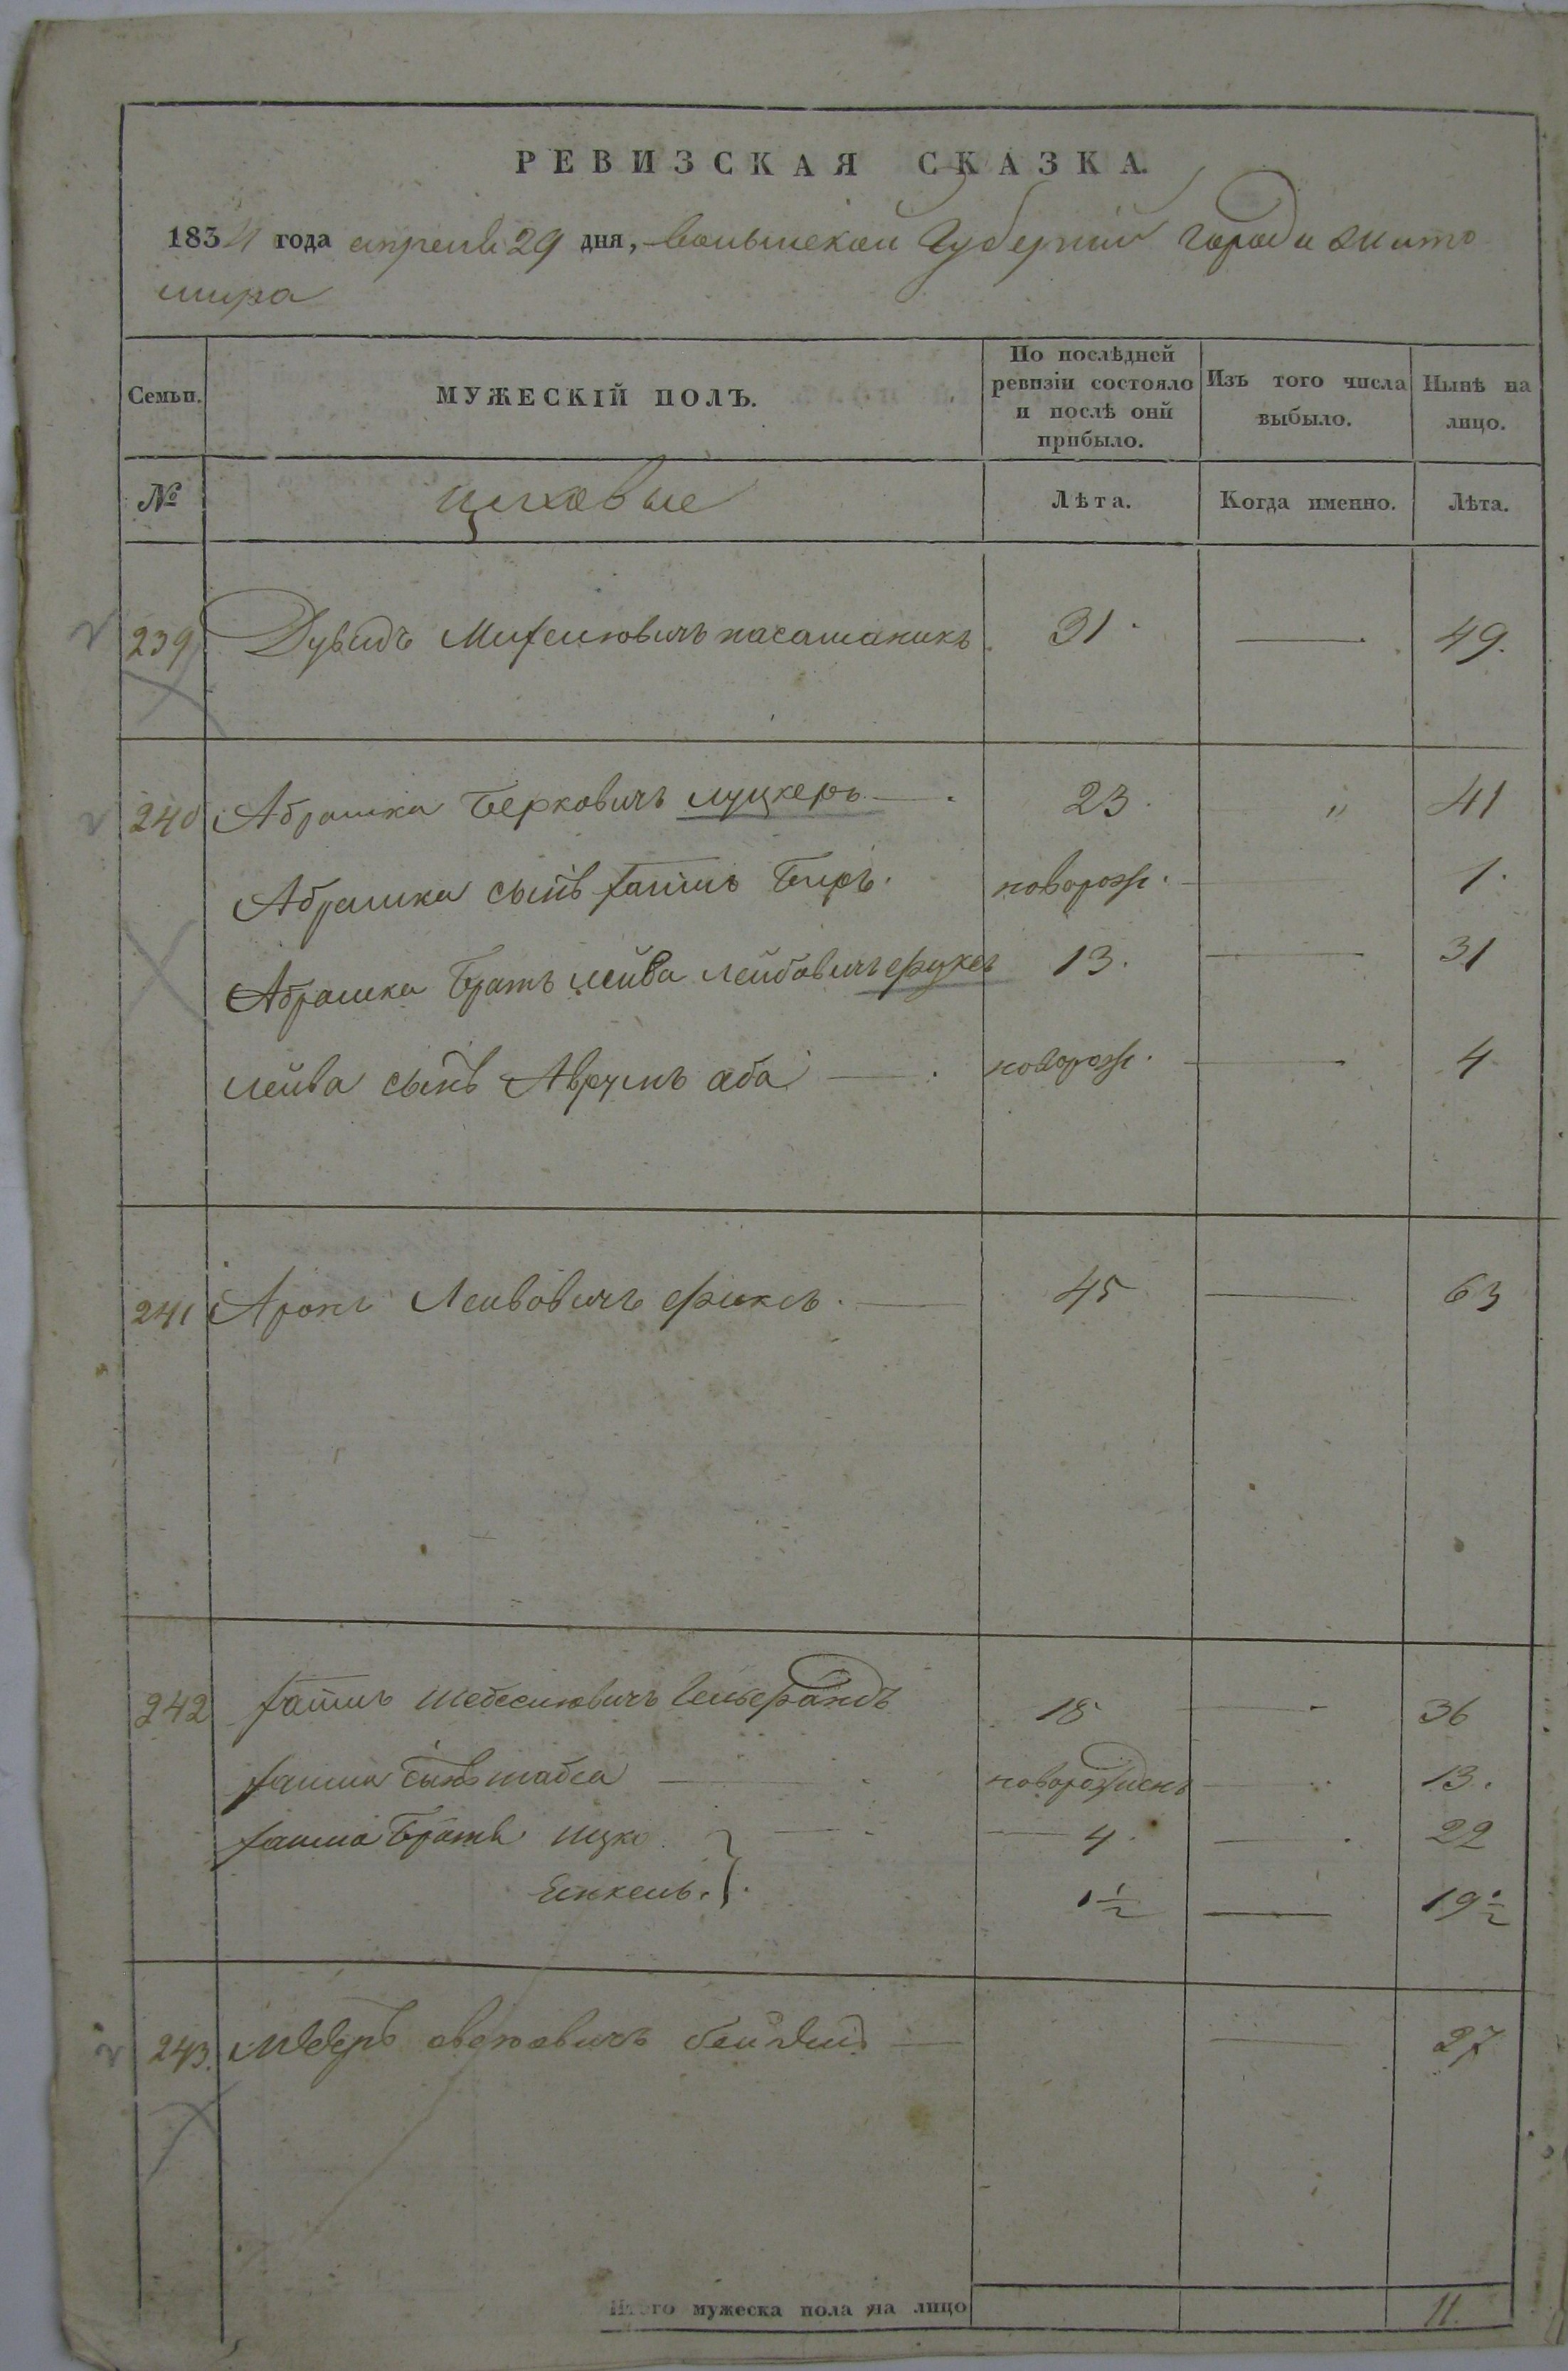 РЕВИЗСКАЯ СКАЗКА.
1834 года апреля 29 дня, волынской Губернии города жито
мира
Семьи.
МУЖЕСКІЙ ПОЛЪ.
По послѣдней ревизіи состояло и послѣ оній прибыло.
Изъ того числа выбыло.
Нынѣ на лицо.
№ цеховые Лѣта. Когда именно. Лѣта.
239 Дувидъ 31 — 49.
240 Абрашка Берковичъ луцкеръ — 23. " 41
Абрашка сынъ Хаимъ Беръ. новорож. 1.
Абрашка братъ лейва лейбовичъ фуксъ 13. — 31
лейва сынъ Аврумъ аба — новорож. — 4
241 Аронъ Лейвовичъ фуксъ. — 45 — 63
242 Хаимъ 18 — 36
Хаима сынъ шабса — новорожденъ — 13.
Хаима братья ицко } — 4. — 22
Енкель. 1½ — 19½
243. — — 27
Итого мужеска пола на лицо 11.